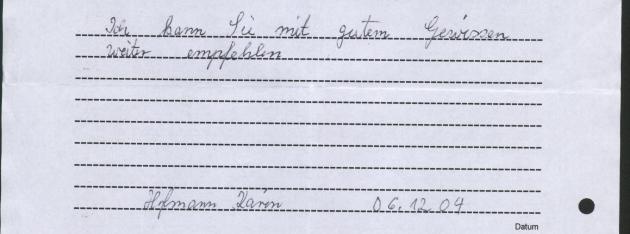 Ich kann Sie mit gutem Gewissen
weiter empfehlen
Hofmann Karen 06.12.04
Datum